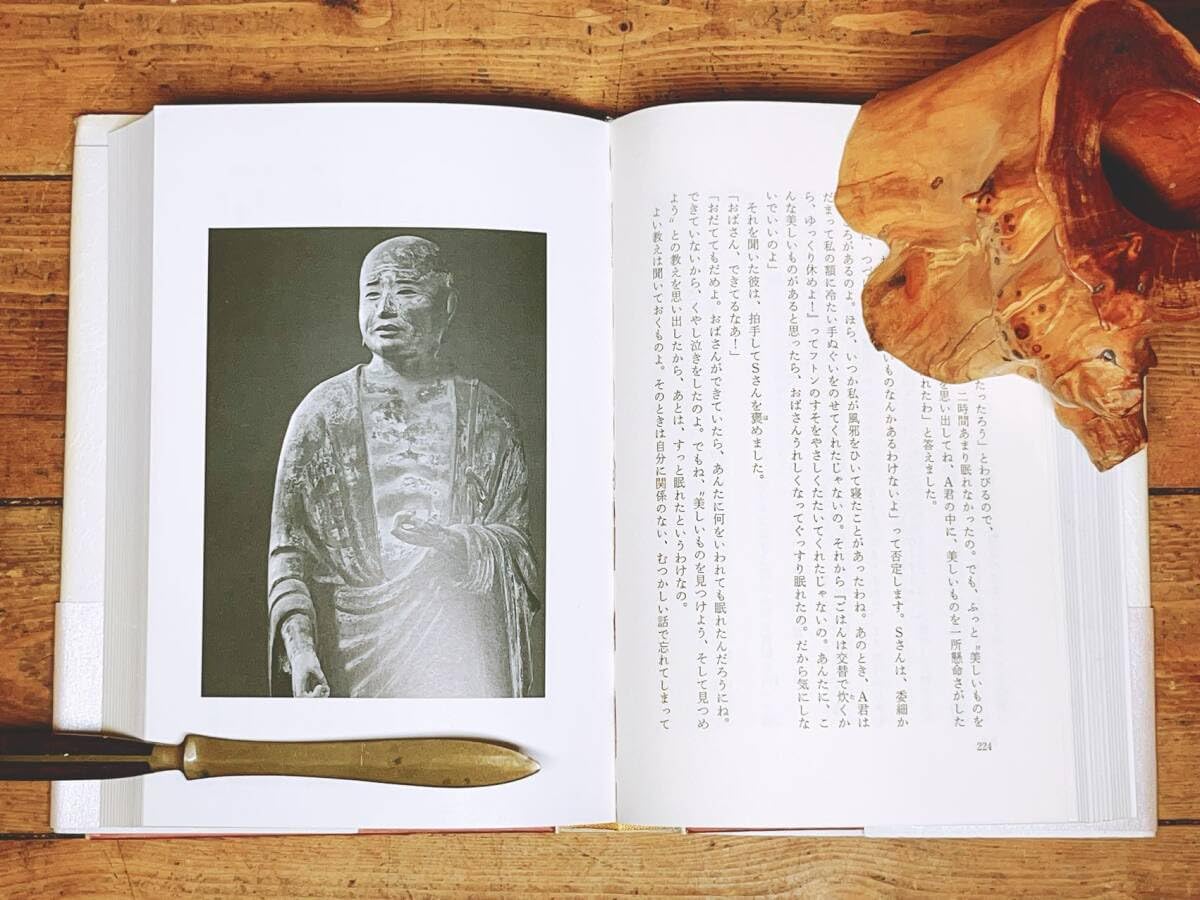 たったろう」とわびるので、
二時間あまり眠れなかったの。でも、ふっと〝美しいものを
を思い出してね、A君の中に、美しいものを一所懸命さがした
れたわ」と答えました。
いものなんかあるわけないよ」って否定します。Sさんは、委細か
ろがあるのよ。ほら、いつか私が風邪をひいて寝たことがあったわね。あのとき、A君は
だまって私の額に冷たい手ぬぐいをのせてくれたじゃないの。それから『ごはんは交替で炊くか
ら、ゆっくり休めよ！』ってフトンのすそをやさしくたたいてくれたじゃないの。あんたに、こ
んな美しいものがあると思ったら、おばさんうれしくなってぐっすり眠れたの。だから気にしな
いでいいのよ」
それを聞いた彼は、拍手してSさんを褒めました。
「おばさん、できてるなあ！」
「おだててもだめよ。おばさんができていたら、あんたに何をいわれても眠れたんだろうにね。
できていないから、くやし泣きをしたのよ。でもね、〝美しいものを見つけよう、そして見つめ
よう〟との教えを思い出したから、あとは、すっと眠れたというわけなの。
よい教えは聞いておくものよ。そのときは自分に関係のない、むつかしい話で忘れてしまって
224